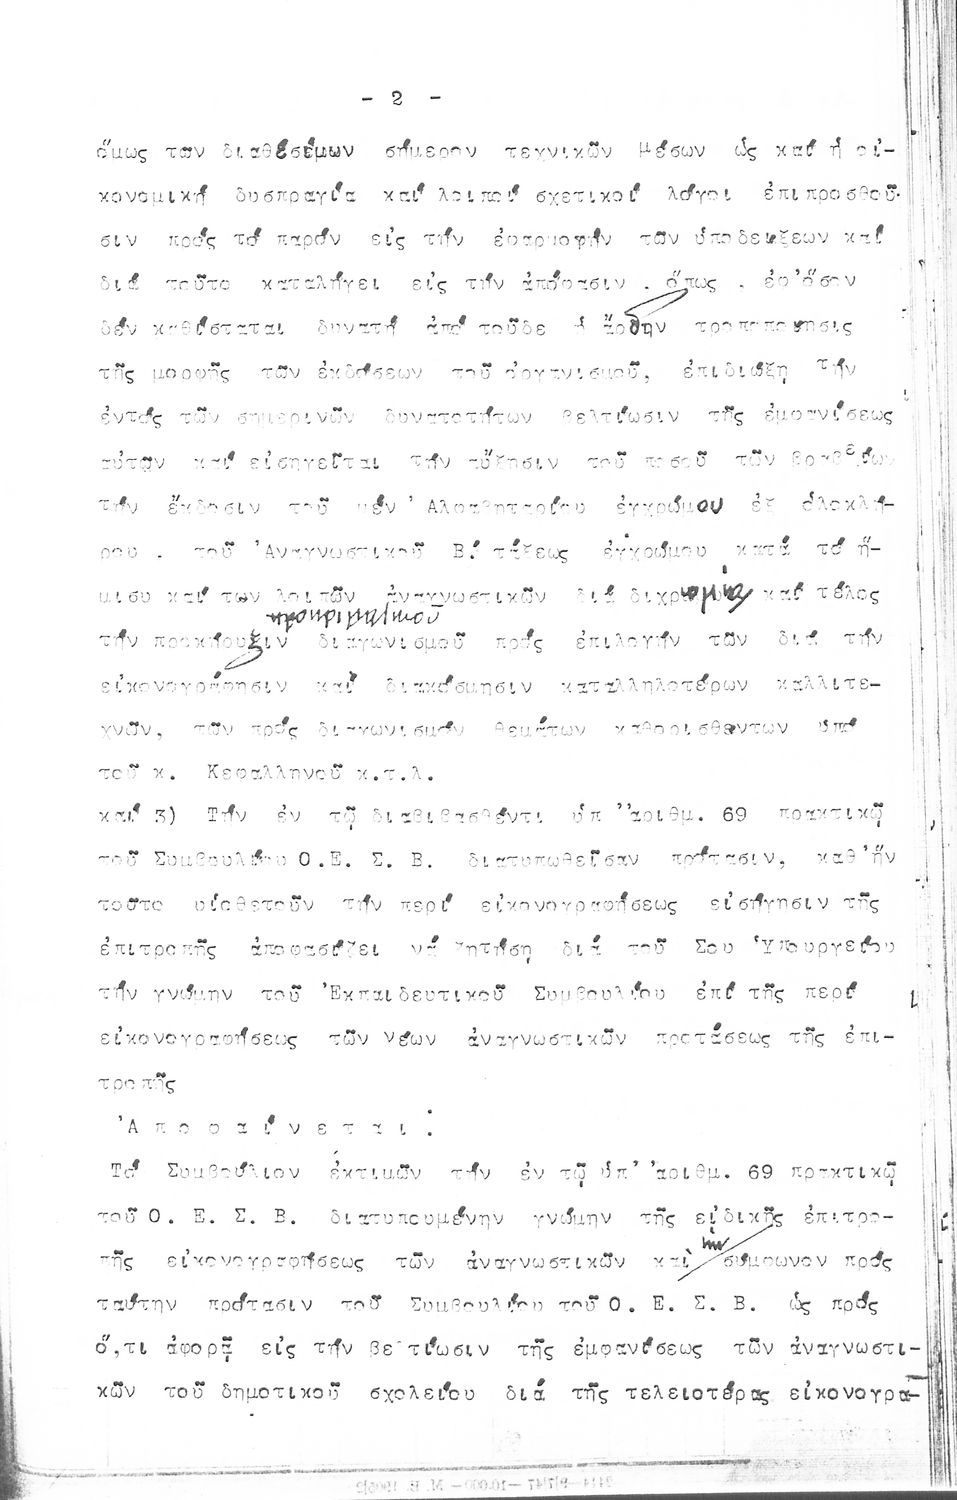 - 2 -
ὅμως των διαθεσίμων σήμερον τεχνικῶν μέσων ὡς καί ἡ οἰ-
κονομική δυσπραγία καί λοιποί σχετικοί λόγοι ἐπιπροσθοῦ-
σιν πρός τό παρόν εἰς τήν ἐφαρμοφήν των ὑποδείξεων καί
διά τοῦτο καταλήγει εἰς τήν ἀπόφασιν . ὅπως . ἐφ'ὅσον
δέν καθίσταται δυνατή ἀπό τοῦδε ἡ ἄρδην τροποποίησις
τῆς μορφῆς τῶν ἐκδόσεων τοῦ ὀργανισμοῦ, ἐπιδιώξη τήν
ἐντός τῶν σημερινῶν δυνατοτήτων βελτίωσιν τῆς ἐμφανίσεως
αὐτων καί εἰσηγεῖται τήν αὔξησιν τοῦ ποσοῦ τῶν βραβείων
τήν ἔκδοσιν τοῦ μέν 'Αλφαβηταρίου ἐγχρώμου ἐξ ὁλοκλή-
ρου . τοῦ 'Αναγνωστικοῦ Β΄ τάξεως ἐγχρώμου κατά τό ἥ-
μισυ καί των λοιπῶν ἀναγνωστικῶν διά διχρωμίας καί τέλος
προκριματικοῦ
τήν προκήρυξιν διαγωνισμοῦ πρός ἐπιλογήν τῶν διά τήν
εἰκονογράφησιν καί διακόσμησιν καταλληλοτέρων καλλιτε-
χνῶν, τῶν πρός διαγωνισμόν θεμάτων καθορισθέντων ὑπό
τοῦ κ. Κεφαλληνοῦ κ.τ.λ.
καί 3) Τήν ἐν τῷ διαβιβασθέντι ὑπ'ἀριθμ. 69 πρακτικῷ
τοῦ Συμβουλίου Ο.Ε.Σ.Β. διατυπωθεῖσαν πρότασιν, καθ'ἥν
τοῦτο υἱοθετοῦν τήν περί εἰκονογραφήσεως εἰσήγησιν τῆς
ἐπιτροπῆς ἀποφασίζει νά ζητήση διά τοῦ Σου Ὑπουργείου
τήν γνώμην τοῦ 'Εκπαιδευτικοῦ Συμβουλίου ἐπί τῆς περί
εἰκονογραφήσεως τῶν νέων ἀναγνωστικῶν προτάσεως τῆς ἐπι-
τροπῆς
'Α π ο φ α ί ν ε τ α ι :
Τό Συμβούλιον ἐκτιμῶν τήν ἐν τῷ ὑπ'ἀριθμ. 69 πρακτικῷ
τοῦ Ο. Ε. Σ. Β. διατυπουμένην γνώμην τῆς εἰδικῆς ἐπιτρο-
πῆς εἰκονογραφήσεως τῶν ἀναγνωστικῶν καί τήν σύμφωνον πρός
ταύτην πρότασιν τοῦ Συμβουλίου τοῦ Ο. Ε. Σ. Β. ὡς πρός
ὅ,τι ἀφορᾷ εἰς τήν βελτίωσιν τῆς ἐμφανίσεως τῶν ἀναγνωστι-
κῶν τοῦ δημοτικοῦ σχολείου διά τῆς τελειοτέρας εἰκονογρα-